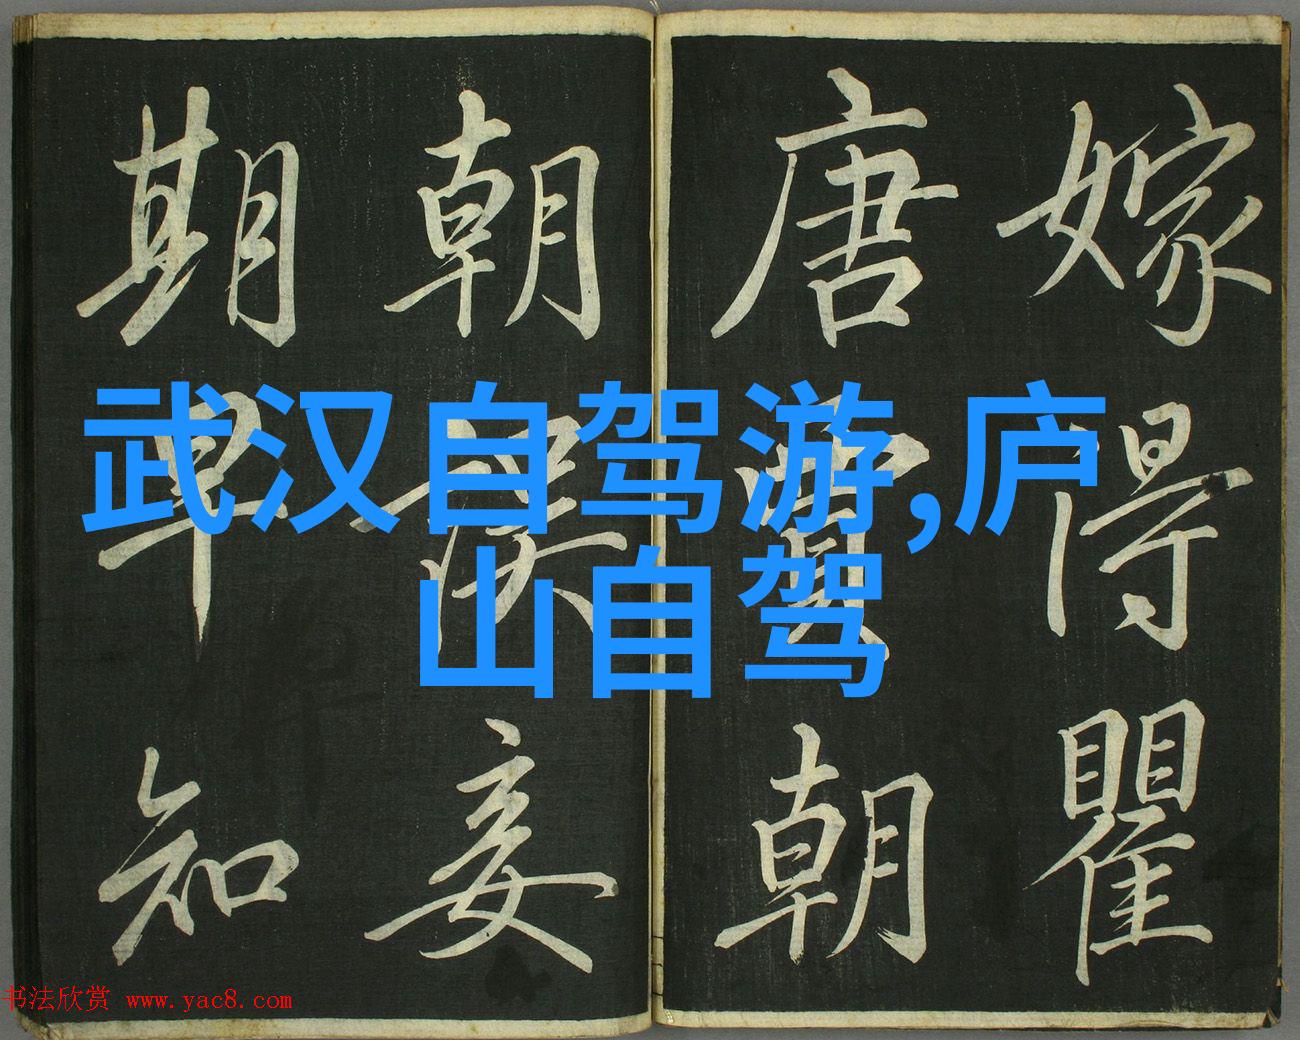 武汉自驾游,庐
山自驾
嫁得瞿
唐賈朝
朝誤妾
期早知
书法欣赏 www.yac8.com